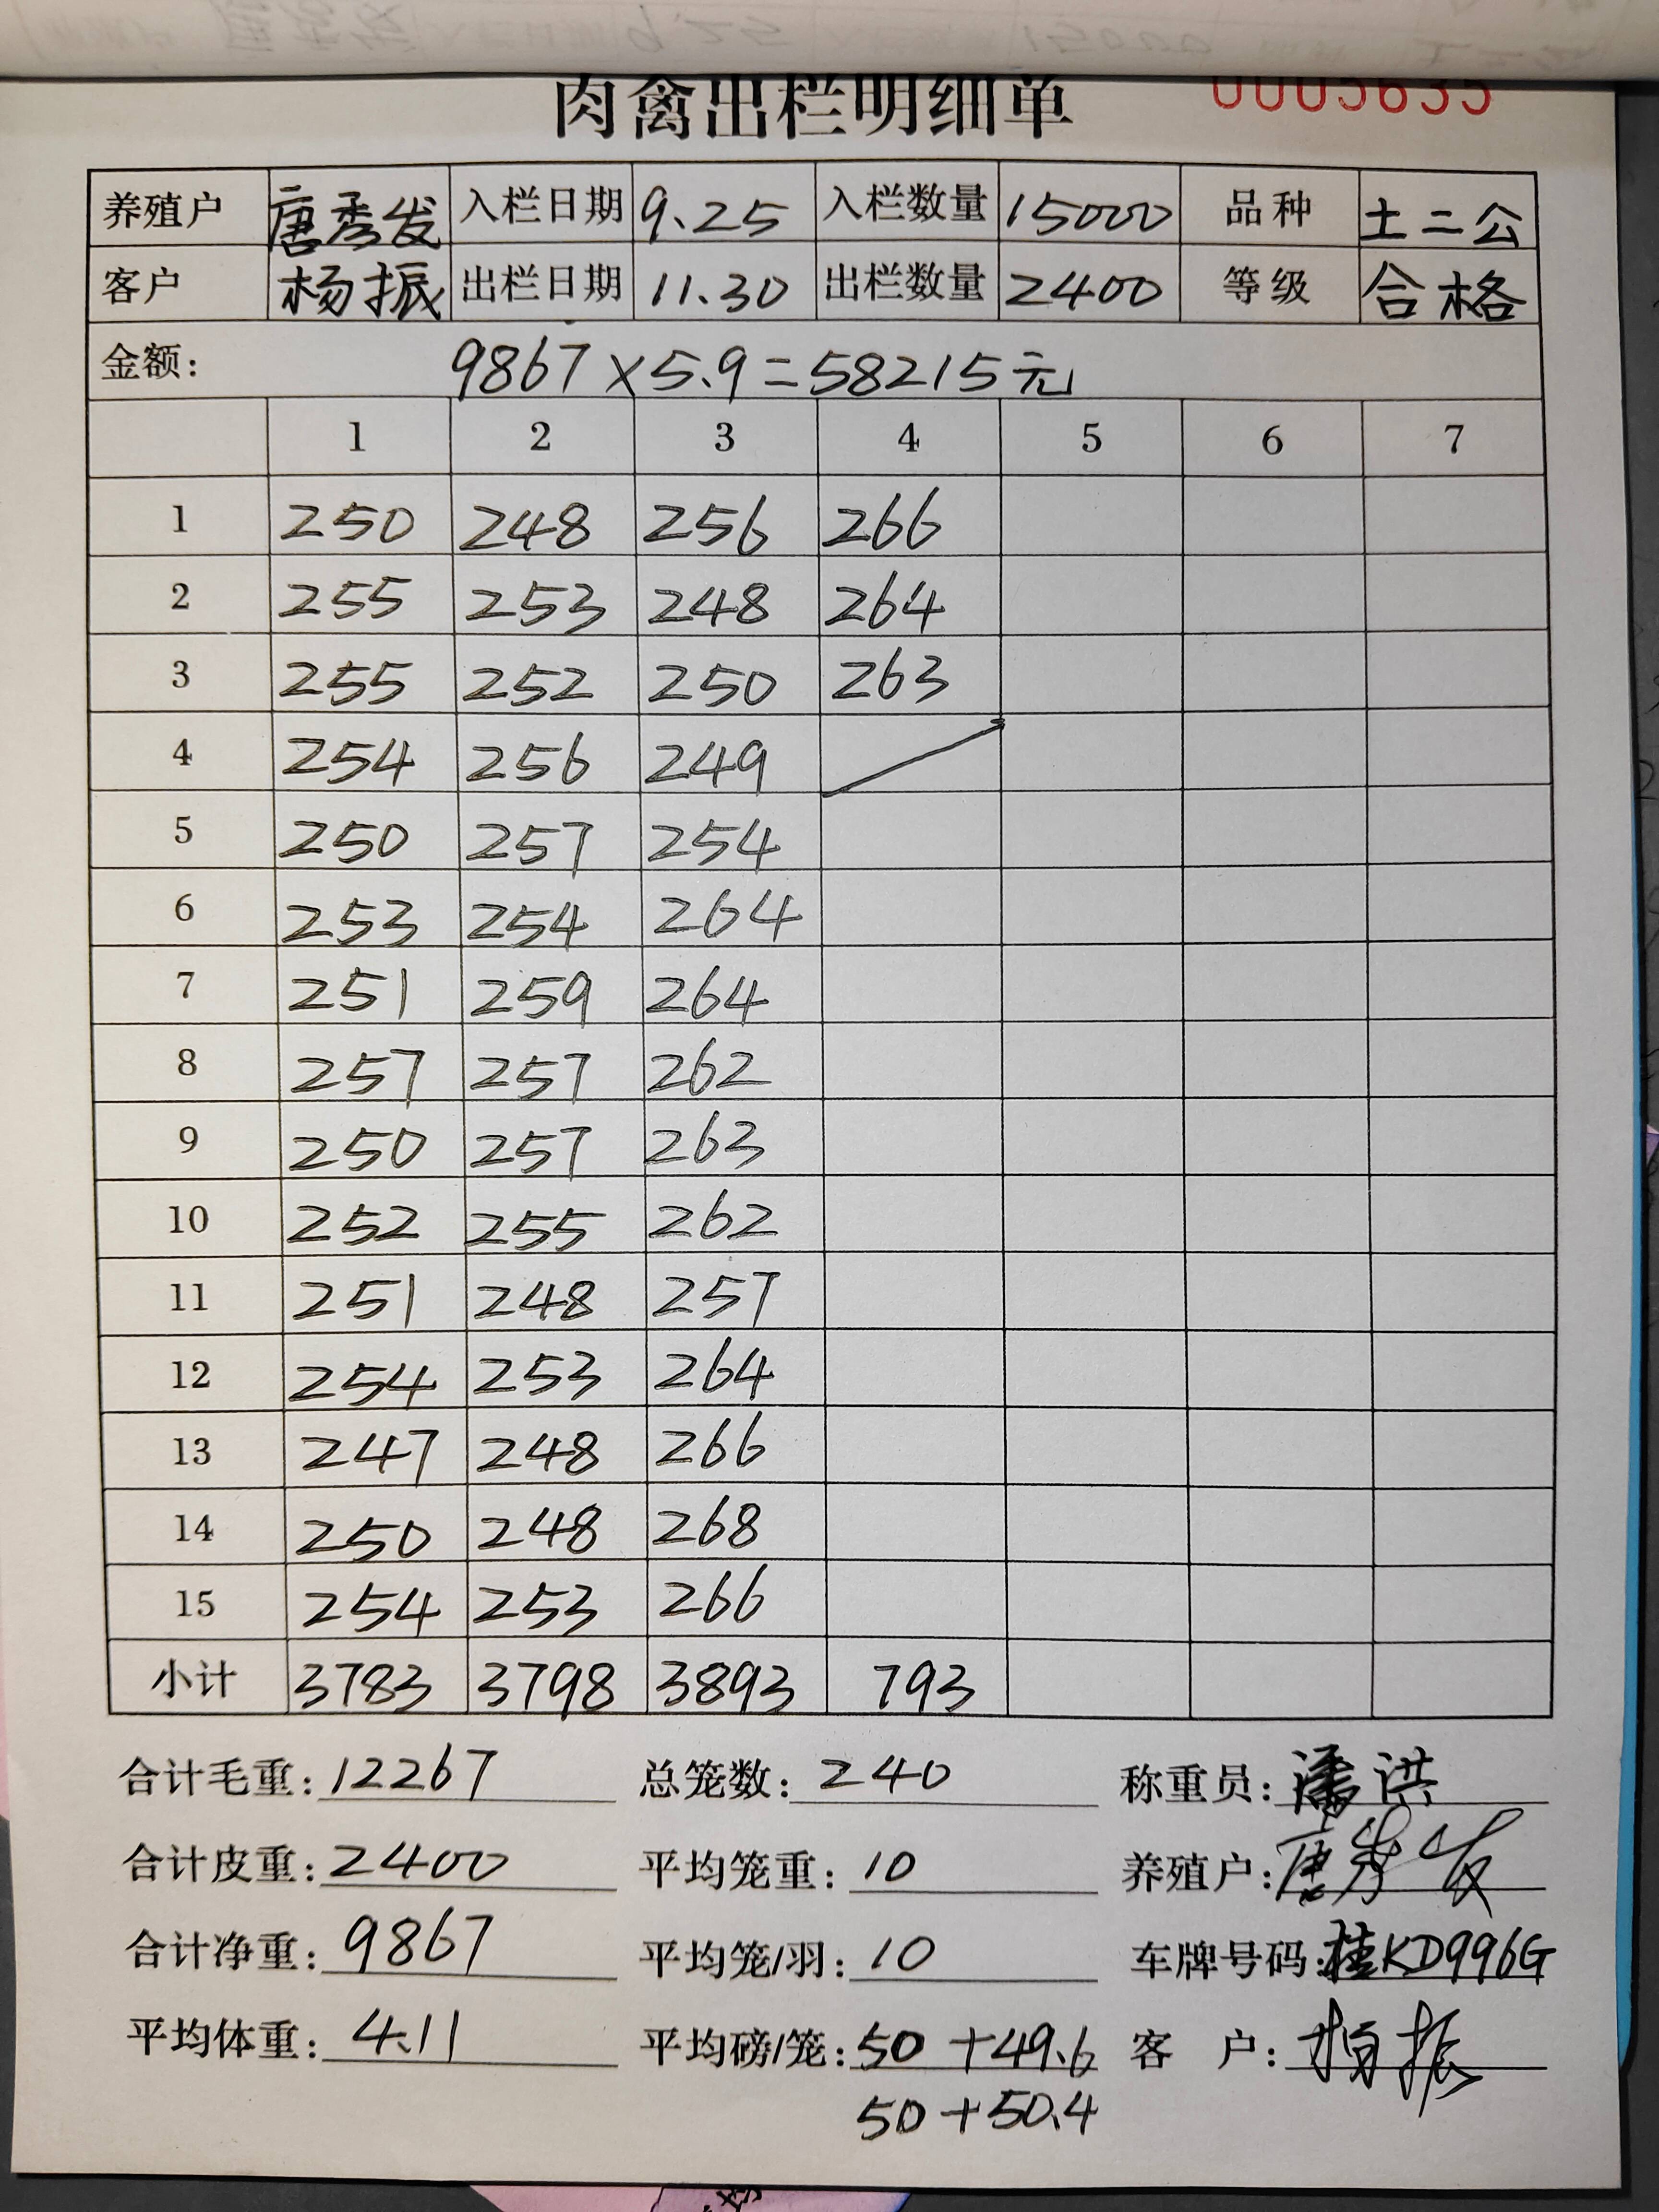 肉禽出栏明细单 0005635
养殖户 唐秀发 入栏日期 9.25 入栏数量 15000 品种 土二公
客户 杨振 出栏日期 11.30 出栏数量 2400 等级 合格
金额: 9867×5.9=58215元
1 2 3 4 5 6 7
1 250 248 256 266
2 255 253 248 264
3 255 252 250 263
4 254 256 249
5 250 257 254
6 253 254 264
7 251 259 264
8 257 257 262
9 250 257 263
10 252 255 262
11 251 248 257
12 254 253 264
13 247 248 266
14 250 248 268
15 254 253 266
小计 3783 3798 3893 793
合计毛重:12267 总笼数:240 称重员:潘洪
合计皮重:2400 平均笼重:10 养殖户:唐秀发
合计净重:9867 平均笼/羽:10 车牌号码:桂KD996G
平均体重:4.11 平均磅/笼:50+49.6 客 户:杨振
50+50.4